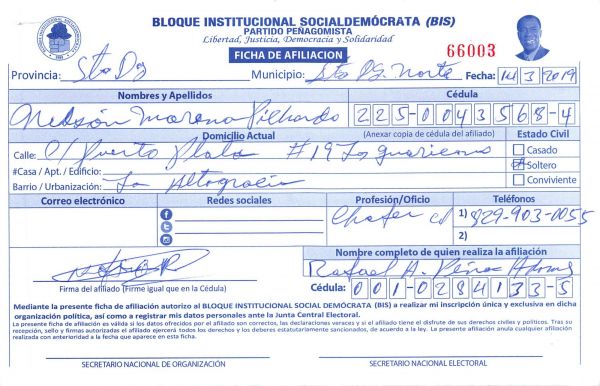 BLOQUE INSTITUCIONAL SOCIALDEMÓCRATA (BIS)
PARTIDO PEÑAGOMISTA
Libertad, Justicia, Democracia y Solidaridad
FICHA DE AFILIACION
66003
Provincia: Sto Dgo Municipio: Sto Dgo. Norte Fecha: 14/3/2019
Nombres y Apellidos Cédula
Moreno Pichardo 225-0043568-4
Domicilio Actual (Anexar copia de cédula del afiliado) Estado Civil
Calle: C/ Puerto Plata #19 Los Guaricanos Casado
#Casa / Apt. / Edificio: Soltero
Barrio / Urbanización: La Altagracia Conviviente
Correo electrónico Redes sociales Profesión/Oficio Teléfonos
Chofer 1) 829-903-0055
2)
Nombre completo de quien realiza la afiliación
Rafael A. Pérez
Firma del afiliado (Firme igual que en la Cédula) Cédula: 001-0284133-5
Mediante la presente ficha de afiliación autorizo al BLOQUE INSTITUCIONAL SOCIAL DEMÓCRATA (BIS) a realizar mi inscripción única y exclusiva en dicha
organización política, así como a registrar mis datos personales ante la Junta Central Electoral.
La presente ficha de afiliación es válida si los datos ofrecidos por el afiliado son correctos, las declaraciones veraces y si el afiliado tiene el disfrute de sus derechos civiles y políticos. Tras su
recepción, sello y firmas autorizadas el afiliado ejercerá todos los derechos y los deberes estatutariamente sancionados, de acuerdo a la ley. La presente afiliación anula cualquier afiliación
realizada con anterioridad a la fecha que aparece en esta ficha.
SECRETARIO NACIONAL DE ORGANIZACIÓN SECRETARIO NACIONAL ELECTORAL